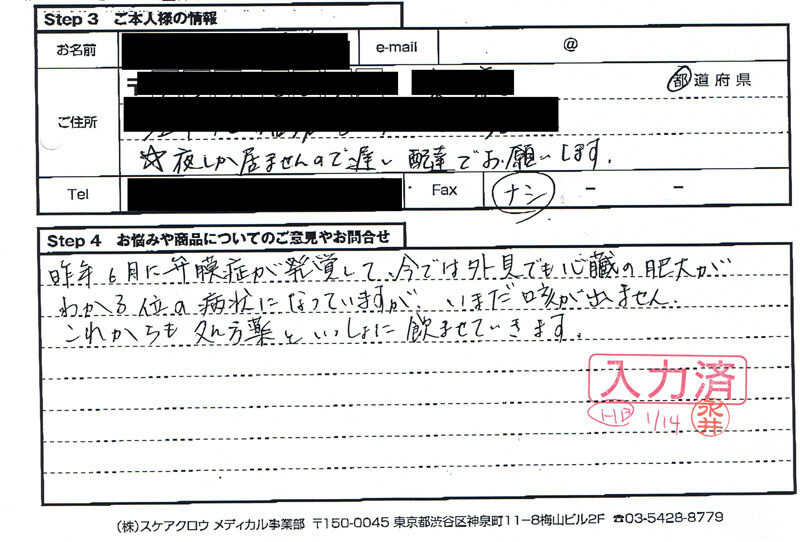 Step 3 ご本人様の情報
お名前 e-mail @
〒 都道府県
ご住所
☆夜しか居ませんので遅い配達でお願いします。
Tel Fax ナシ － －
Step 4 お悩みや商品についてのご意見やお問合せ
昨年6月に弁膜症が発覚して、今では外見でも心臓の肥大が
わかる位の病状になっていますが、いまだ咳が出ません。
これからも処方薬といっしょに飲ませていきます。
入力済
HB 1/14 永井
(株)スケアクロウ メディカル事業部 〒150-0045 東京都渋谷区神泉町11-8梅山ビル2F ☎03-5428-8779